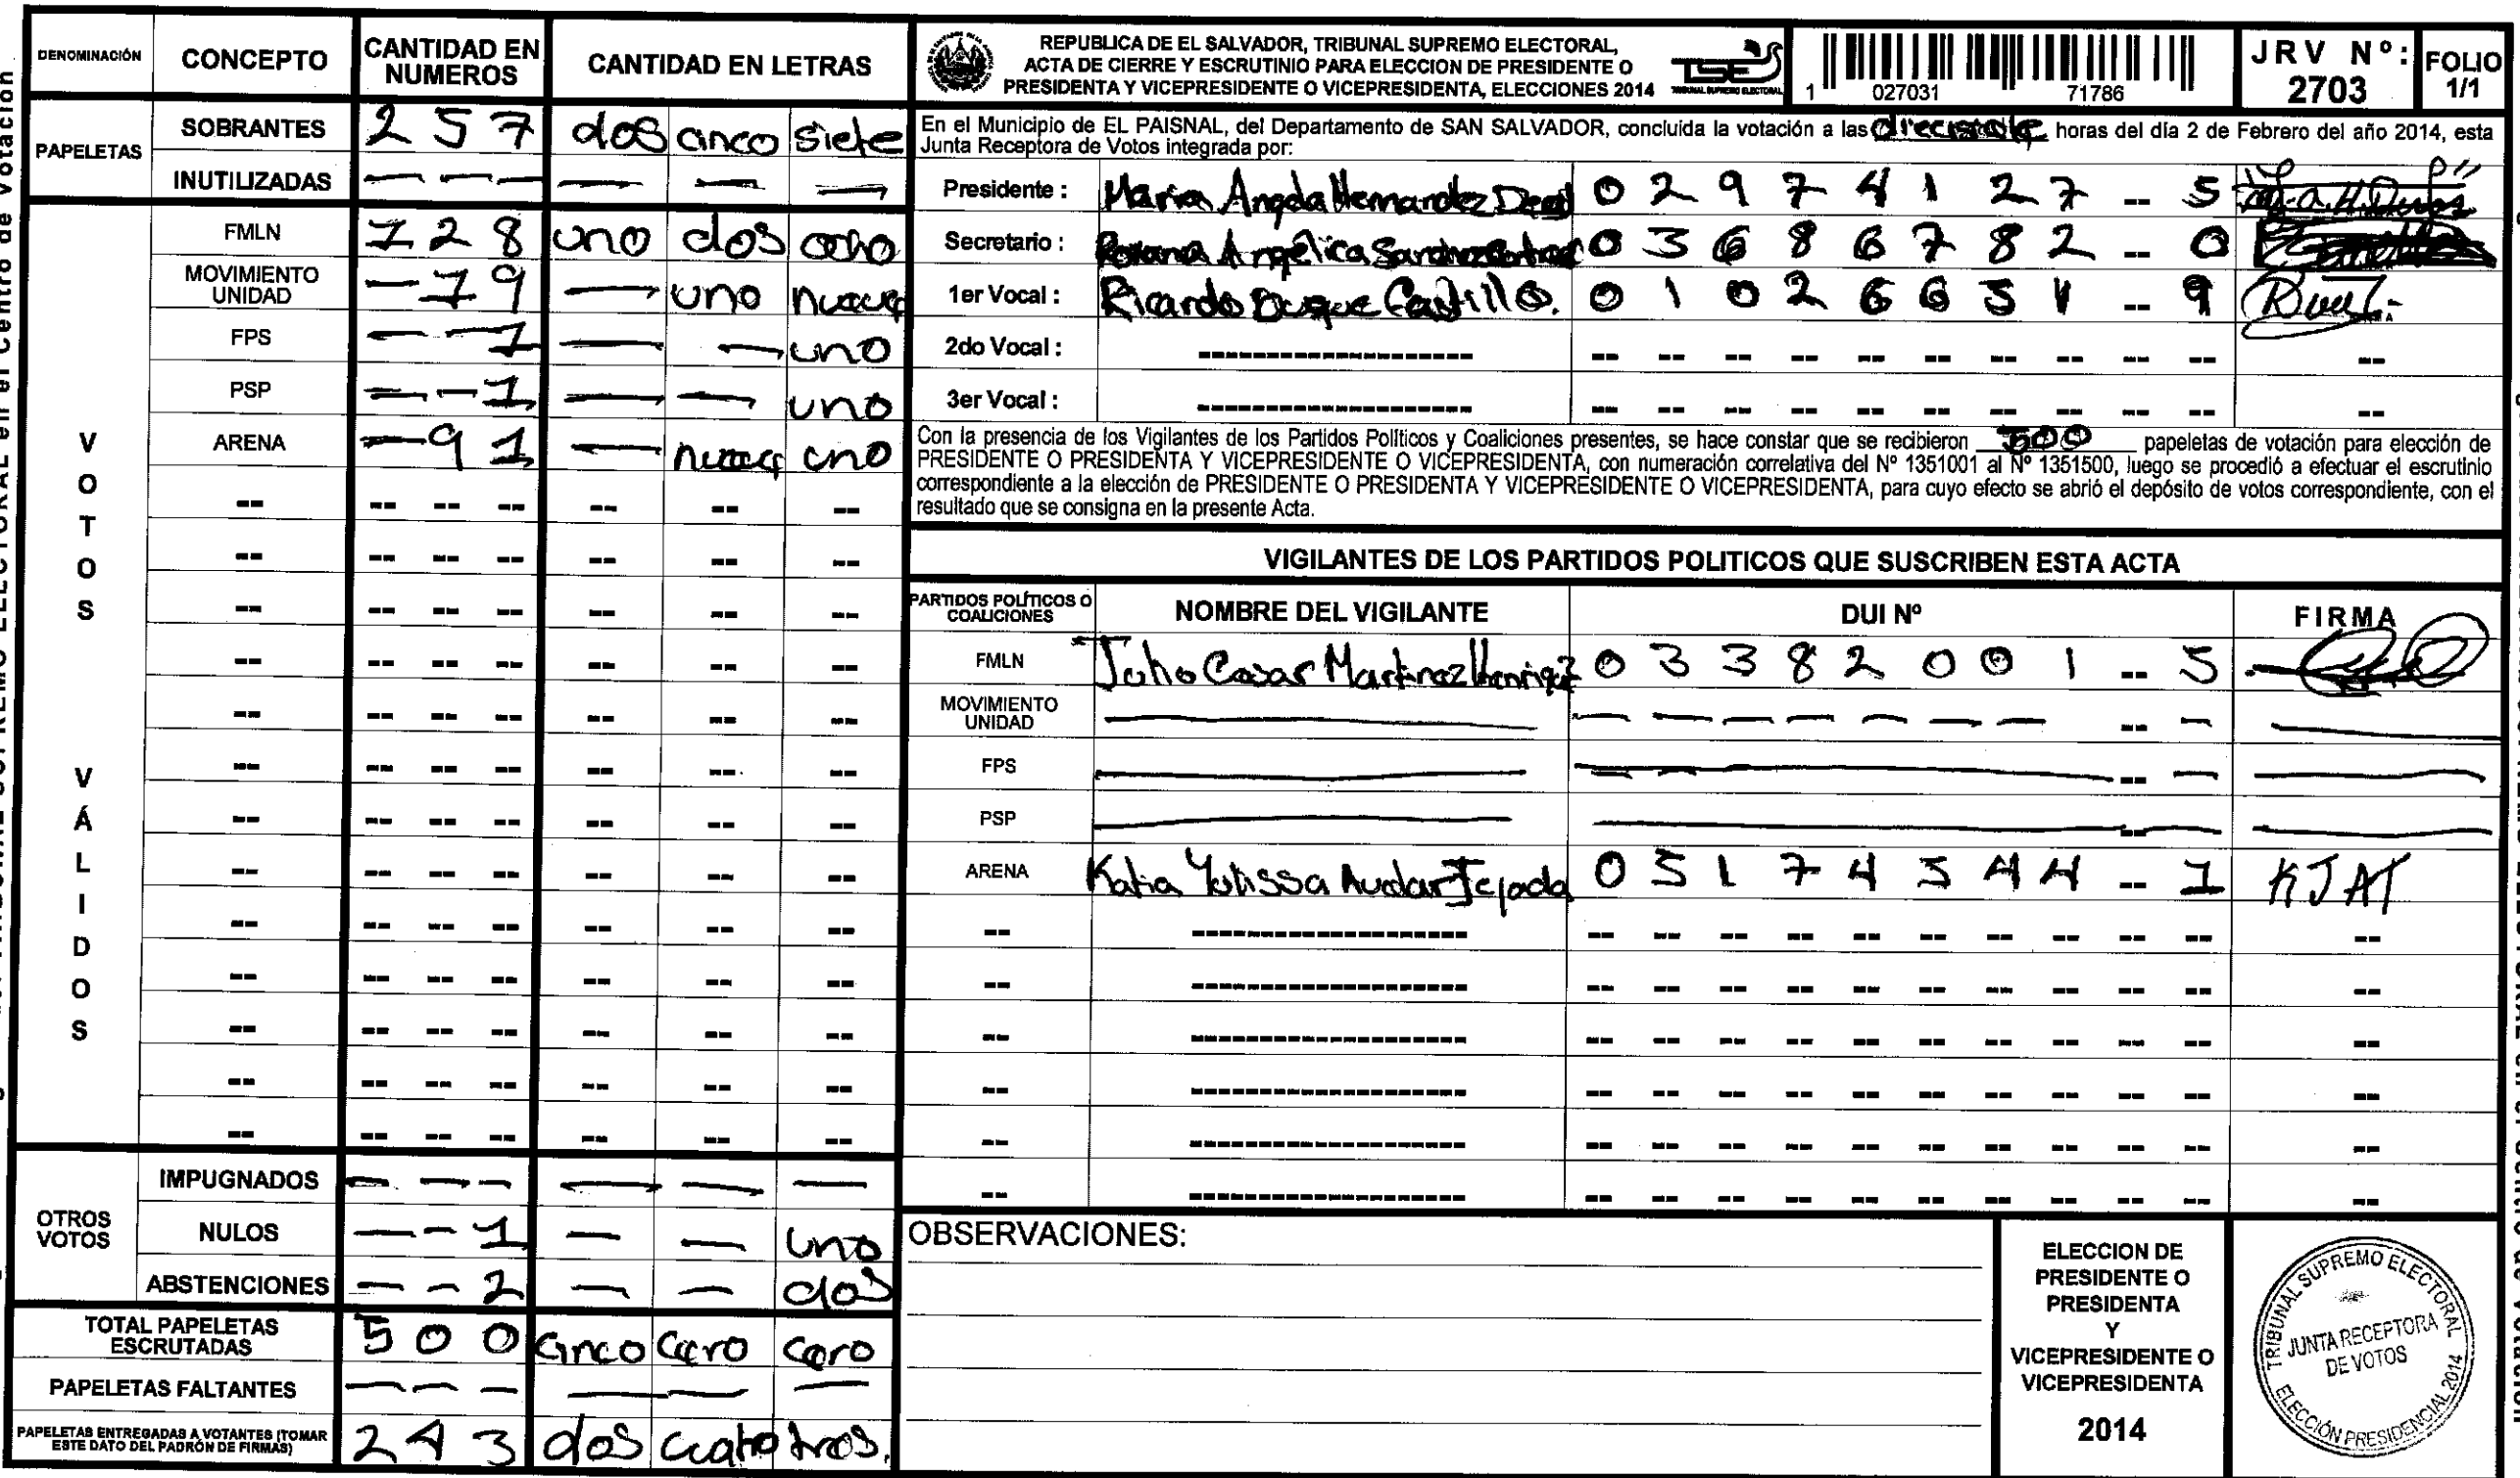 DENOMINACIÓN CONCEPTO CANTIDAD EN NUMEROS CANTIDAD EN LETRAS
PAPELETAS
SOBRANTES 2 5 7 dos cinco siete
INUTILIZADAS — — — — — —
VOTOS VÁLIDOS
FMLN 1 2 8 uno dos ocho
MOVIMIENTO UNIDAD — 1 9 — uno nueve
FPS — — 1 — — uno
PSP — — 1 — — uno
ARENA — 9 1 — nueve uno
OTROS VOTOS
IMPUGNADOS — — — — — —
NULOS — — 1 — — uno
ABSTENCIONES — — 2 — — dos
TOTAL PAPELETAS ESCRUTADAS 5 0 0 cinco cero cero
PAPELETAS FALTANTES — — — — — —
PAPELETAS ENTREGADAS A VOTANTES (TOMAR ESTE DATO DEL PADRÓN DE FIRMAS) 2 4 3 dos cuatro tres.
REPUBLICA DE EL SALVADOR, TRIBUNAL SUPREMO ELECTORAL,
ACTA DE CIERRE Y ESCRUTINIO PARA ELECCION DE PRESIDENTE O
PRESIDENTA Y VICEPRESIDENTE O VICEPRESIDENTA, ELECCIONES 2014
TSE
TRIBUNAL SUPREMO ELECTORAL
1 027031 71786
JRV Nº: 2703
FOLIO 1/1
En el Municipio de EL PAISNAL, del Departamento de SAN SALVADOR, concluida la votación a las horas del día 2 de Febrero del año 2014, esta
Junta Receptora de Votos integrada por:
Presidente : Maria Angela Hernandez 0 2 9 7 4 1 2 7 -- 5
Secretario : Angelica 0 3 6 8 6 7 8 2 -- 0
1er Vocal : Ricardo Duque Castillo. 0 1 0 2 6 6 5 -- 9
2do Vocal :
3er Vocal :
Con la presencia de los Vigilantes de los Partidos Políticos y Coaliciones presentes, se hace constar que se recibieron 500 papeletas de votación para elección de
PRESIDENTE O PRESIDENTA Y VICEPRESIDENTE O VICEPRESIDENTA, con numeración correlativa del Nº 1351001 al Nº 1351500, luego se procedió a efectuar el escrutinio
correspondiente a la elección de PRESIDENTE O PRESIDENTA Y VICEPRESIDENTE O VICEPRESIDENTA, para cuyo efecto se abrió el depósito de votos correspondiente, con el
resultado que se consigna en la presente Acta.
VIGILANTES DE LOS PARTIDOS POLITICOS QUE SUSCRIBEN ESTA ACTA
PARTIDOS POLÍTICOS O COALICIONES NOMBRE DEL VIGILANTE DUI Nº FIRMA
FMLN Julio Cesar Martinez Henriquez 0 3 3 8 2 0 0 1 -- 5
MOVIMIENTO UNIDAD
FPS
PSP
ARENA Katia Tejada 0 5 1 7 4 3 4 4 -- 1 KJAT
OBSERVACIONES:
ELECCION DE
PRESIDENTE O
PRESIDENTA
Y
VICEPRESIDENTE O
VICEPRESIDENTA
2014
TRIBUNAL SUPREMO ELECTORAL
JUNTA RECEPTORA
DE VOTOS
ELECCIÓN PRESIDENCIAL 2014